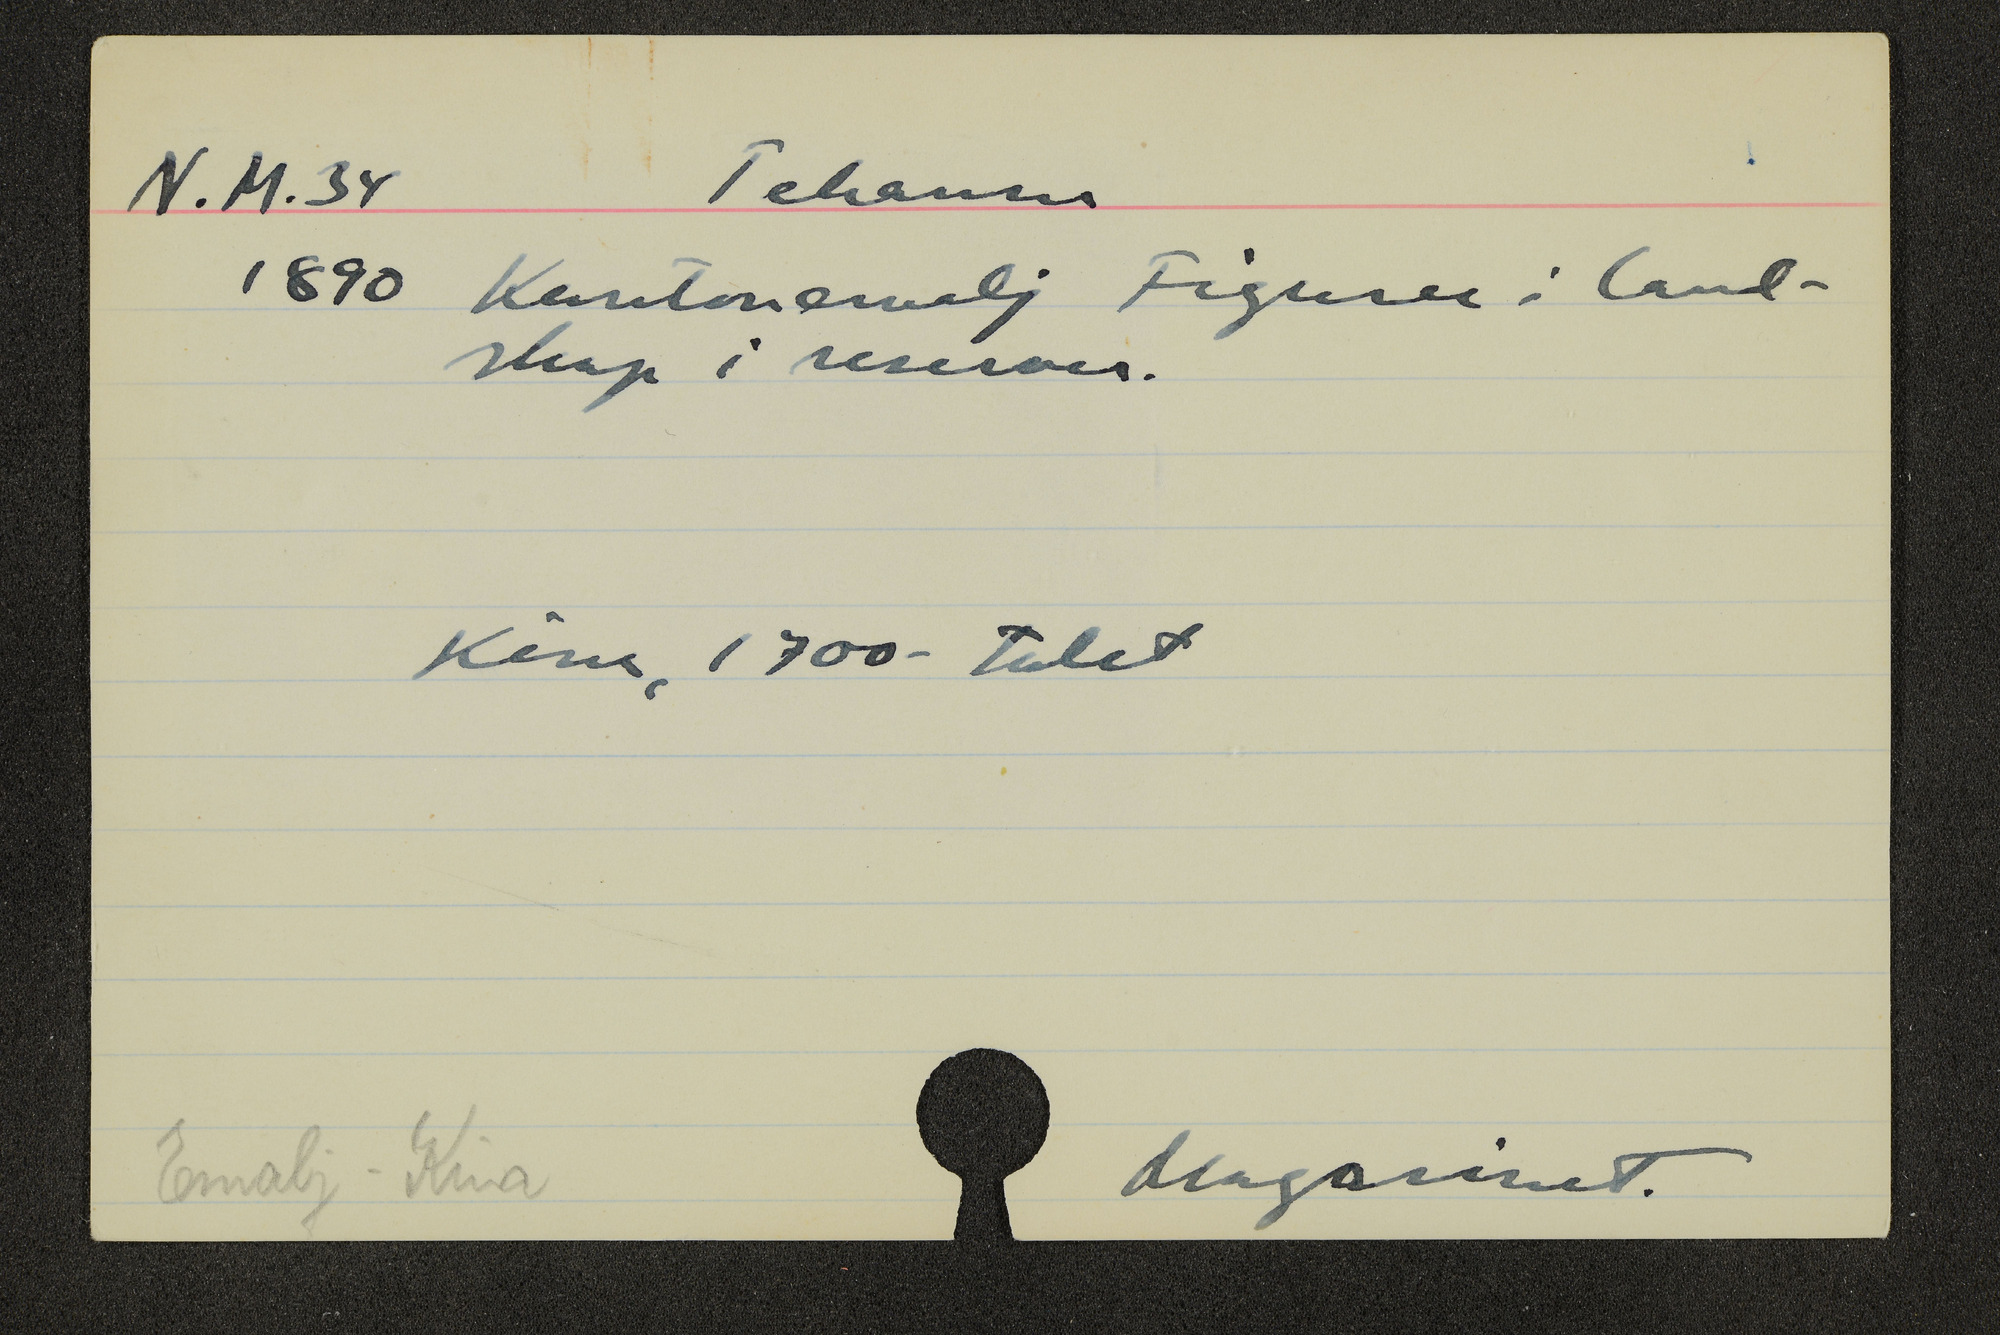 N.M.34 Tekanna
1890 Kantonemalj Figurer i land-
skap i reserver.
Kina, 1700-talet
Emalj - Kina
Magasinet.